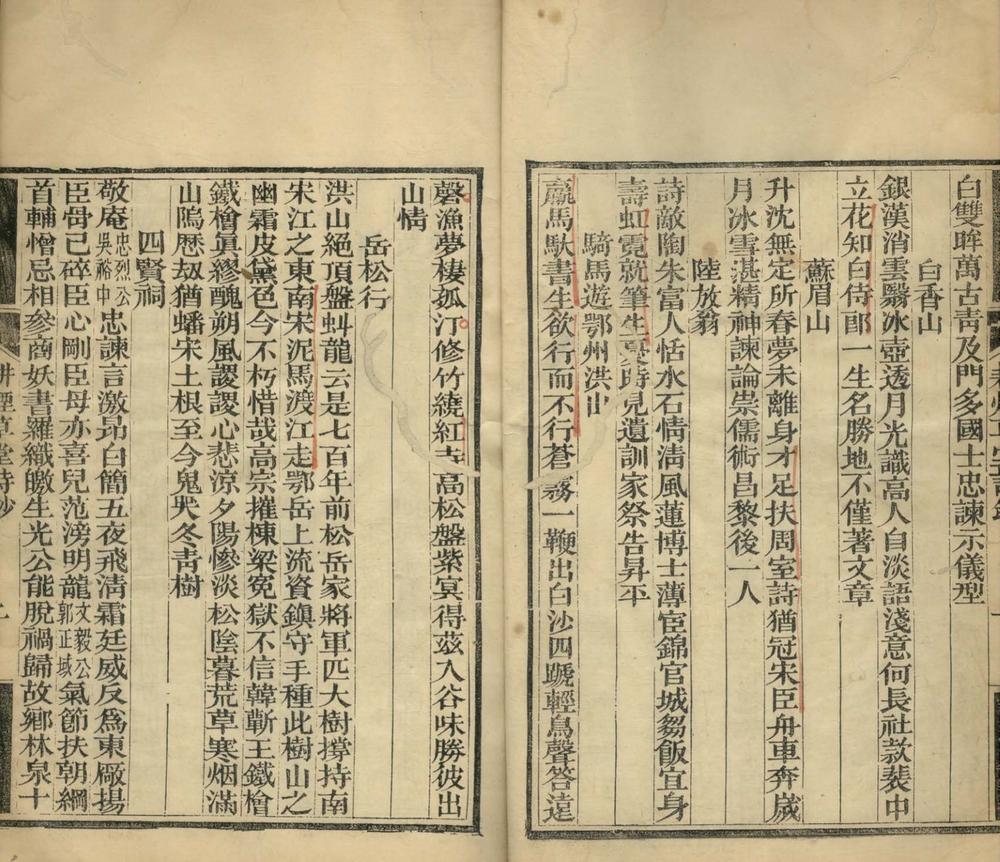 白雙眸萬古靑及門多國士忠諫示儀型
白香山
銀漢消雲翳冰壺透月光識高人自淡語淺意何長社款裴中
立花知白侍郎一生名勝地不僅著文章
蘇眉山
升沈無定所春夢未離身才足扶周室詩猶冠宋臣舟車奔歲
月冰雪湛精神諫論祟儒術昌黎後一人
陸放翁
詩敵陶朱富人恬水石情淸風蓮博士薄宦錦官城芻飯宜身
壽虹霓就筆生憂時見遺訓家祭告昇平
騎馬遊鄂州洪山
羸馬馱書生欲行而不行蒼霧一鞭出白沙四蹏輕鳥聲答遠
磬漁夢棲孤汀修竹繞紅寺高松盤紫冥得茲入谷味勝彼出
山情
岳松行
洪山絶頂盤虯龍云是七百年前松岳家將軍匹大樹撐持南
宋江之東南宋泥馬渡江走鄂岳上流資鎭守手種此樹山之
幽霜皮黛色今不朽惜哉高宗摧棟梁冤獄不信韓蘄王鐵檜
鐵檜眞繆醜朔風謖謖心悲涼夕陽慘淡松陰暮荒草寒烟滿
山隖歷刼猶蟠宋土根至今鬼哭冬靑樹
四賢祠
敬庵忠烈公吳裕中忠諫言激昂白簡五夜飛淸霜廷威反爲東廠揚
臣骨已碎臣心剛臣母亦喜兒范滂明龍文毅公郭正域氣節扶朝綱
首輔憎忌相參商妖書羅織皦生光公能脫禍歸故鄕林泉十
耕煙草堂詩鈔
二